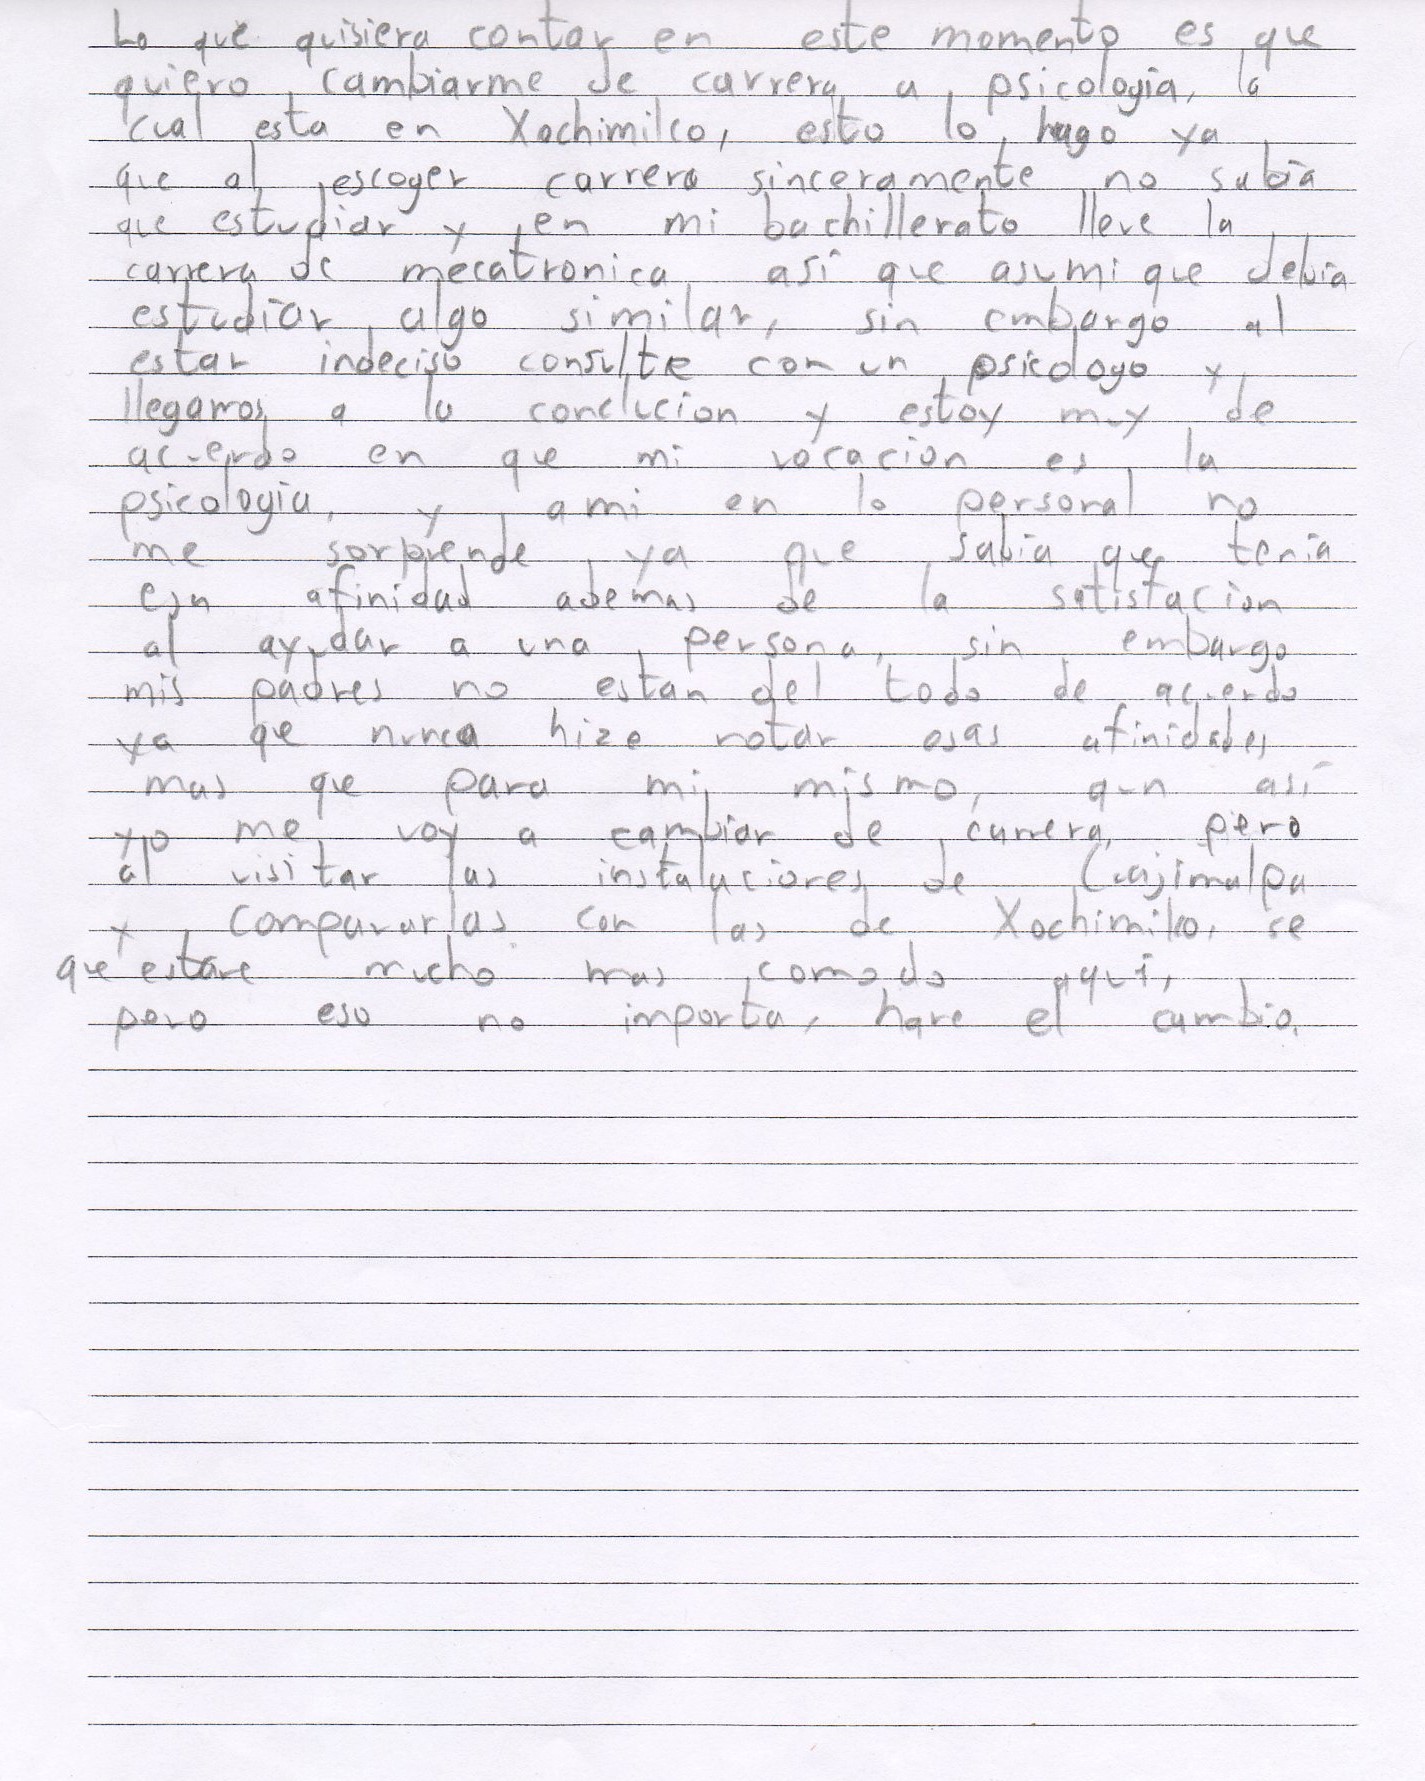 Lo que quisiera contar en este momento es que
quiero cambiarme de carrera a psicologia, la
cual esta en Xochimilco, esto lo hago ya
que al escoger carrera sinceramente no sabia
que estudiar y en mi bachillerato lleve la
carrera de mecatronica así que asumi que debia
estudiar algo similar, sin embargo al
estar indeciso consulte con un psicologo y
llegamos a la conclucion y estoy muy de
acuerdo en que mi vocacion es la
psicologia, y a mi en lo personal no
me sorprende ya que sabia que tenia
esa afinidad ademas de la satisfacion
al ayudar a una persona, sin embargo
mis padres no estan del todo de acuerdo
ya que nunca hize notar esas afinidades
mas que para mi mismo, aun así
yo me voy a cambiar de carrera, pero
al visitar las instalaciones de Cuajimalpa
y compararlas con las de Xochimilco, se
que estare mucho mas comodo aquí,
pero eso no importa, hare el cambio.